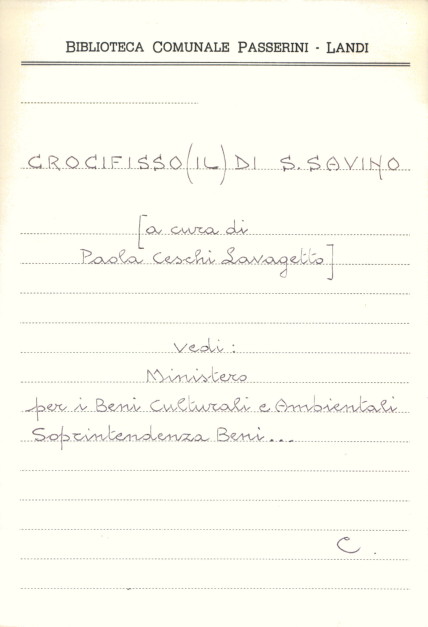 BIBLIOTECA COMUNALE PASSERINI - LANDI
CROCIFISSO (IL) DI S. SAVINO
[a cura di
Paola Ceschi Lavagetto]
vedi:
Ministero
per i Beni Culturali e Ambientali
Soprintendenza Beni...
C.